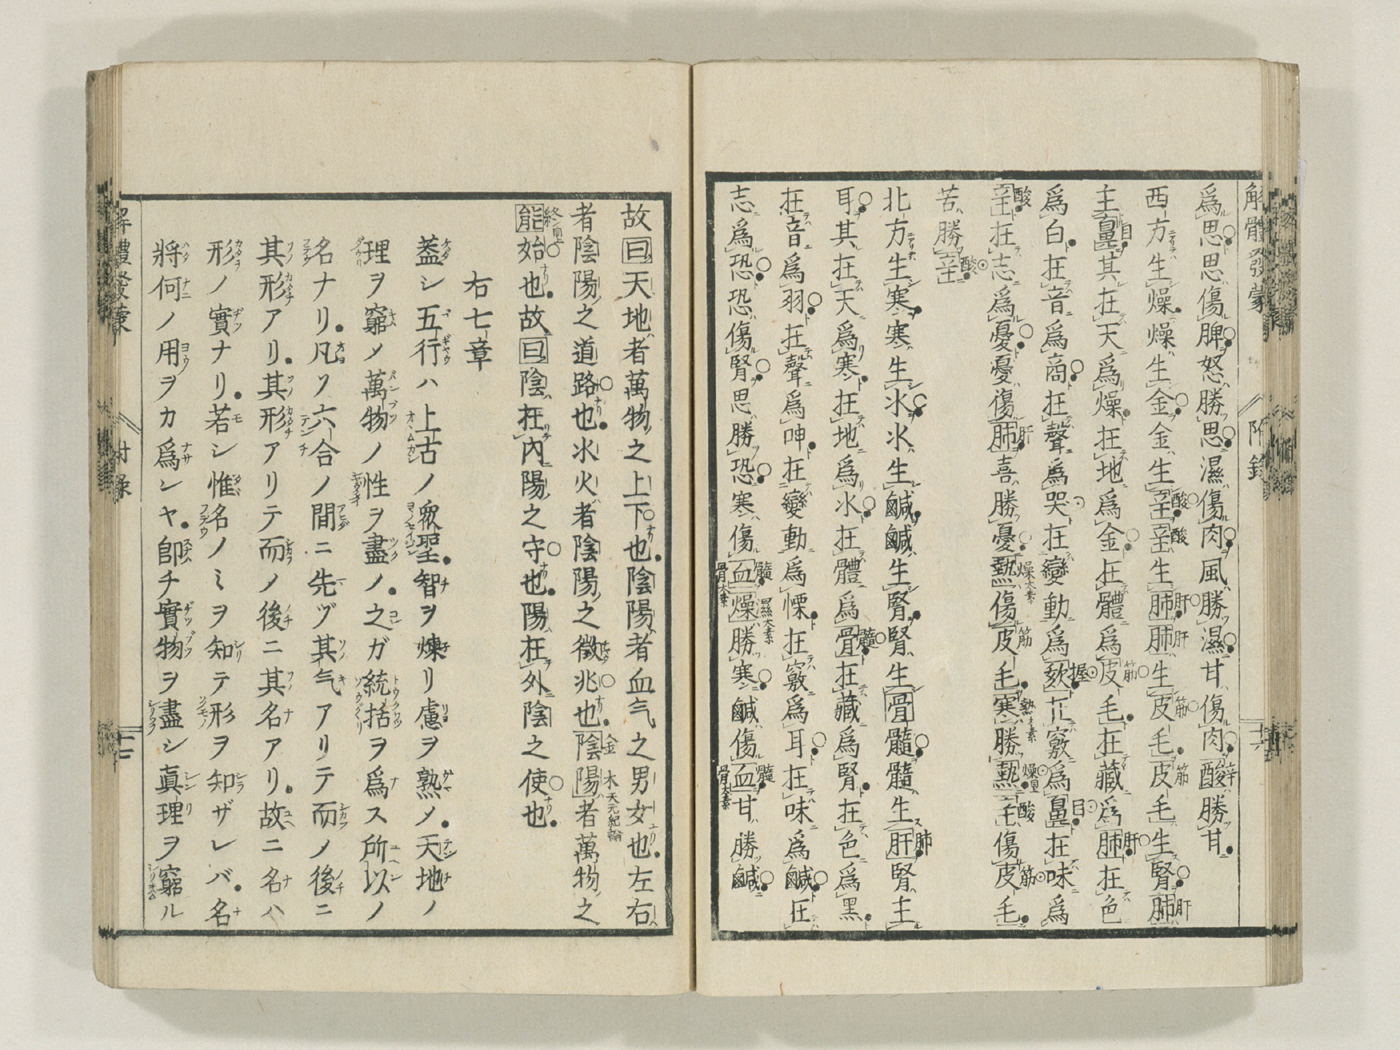 解體發蒙
附録
十六
爲思思傷脾怒勝思濕傷肉風勝濕甘傷肉酸勝甘
西方生燥燥生金金生辛辛生肺肺生皮毛皮毛生腎肺
主鼻其在天爲燥在地爲金在體爲皮毛在藏爲肺在色
爲白在音爲商在聲爲哭在變動爲欬在竅爲鼻在味爲
辛在志爲憂憂傷肺喜勝憂熱傷皮毛寒勝熱辛傷皮毛
苦勝辛
北方生寒寒生水水生鹹鹹生腎腎生骨髓髓生肝腎主
耳其在天爲寒在地爲水在體爲骨在藏爲腎在色爲黑
在音爲羽在聲爲呻在變動爲慄在竅爲耳在味爲鹹在
志爲恐恐傷腎思勝恐寒傷血燥勝寒鹹傷血甘勝鹹
故曰天地者萬物之上下也陰陽者血气之男女也左右
者陰陽之道路也水火者陰陽之徴兆也陰陽者萬物之
能始也故曰陰在內陽之守也陽在外陰之使也
右七章
蓋シ五行ハ上古ノ衆聖智ヲ煉リ慮ヲ熟メ天地ノ
理ヲ窮メ萬物ノ性ヲ盡ノ之ガ統括ヲ爲ス所以ノ
名ナリ凡ソ六合ノ間ニ先ヅ其气アリテ而ノ後ニ
其形アリ其形アリテ而ノ後ニ其名アリ故ニ名ハ
形ノ實ナリ若シ惟名ノミヲ知テ形ヲ知ザレバ名
將何ノ用ヲカ爲シヤ卽チ實物ヲ盡シ真理ヲ窮ル
解體發蒙
附録